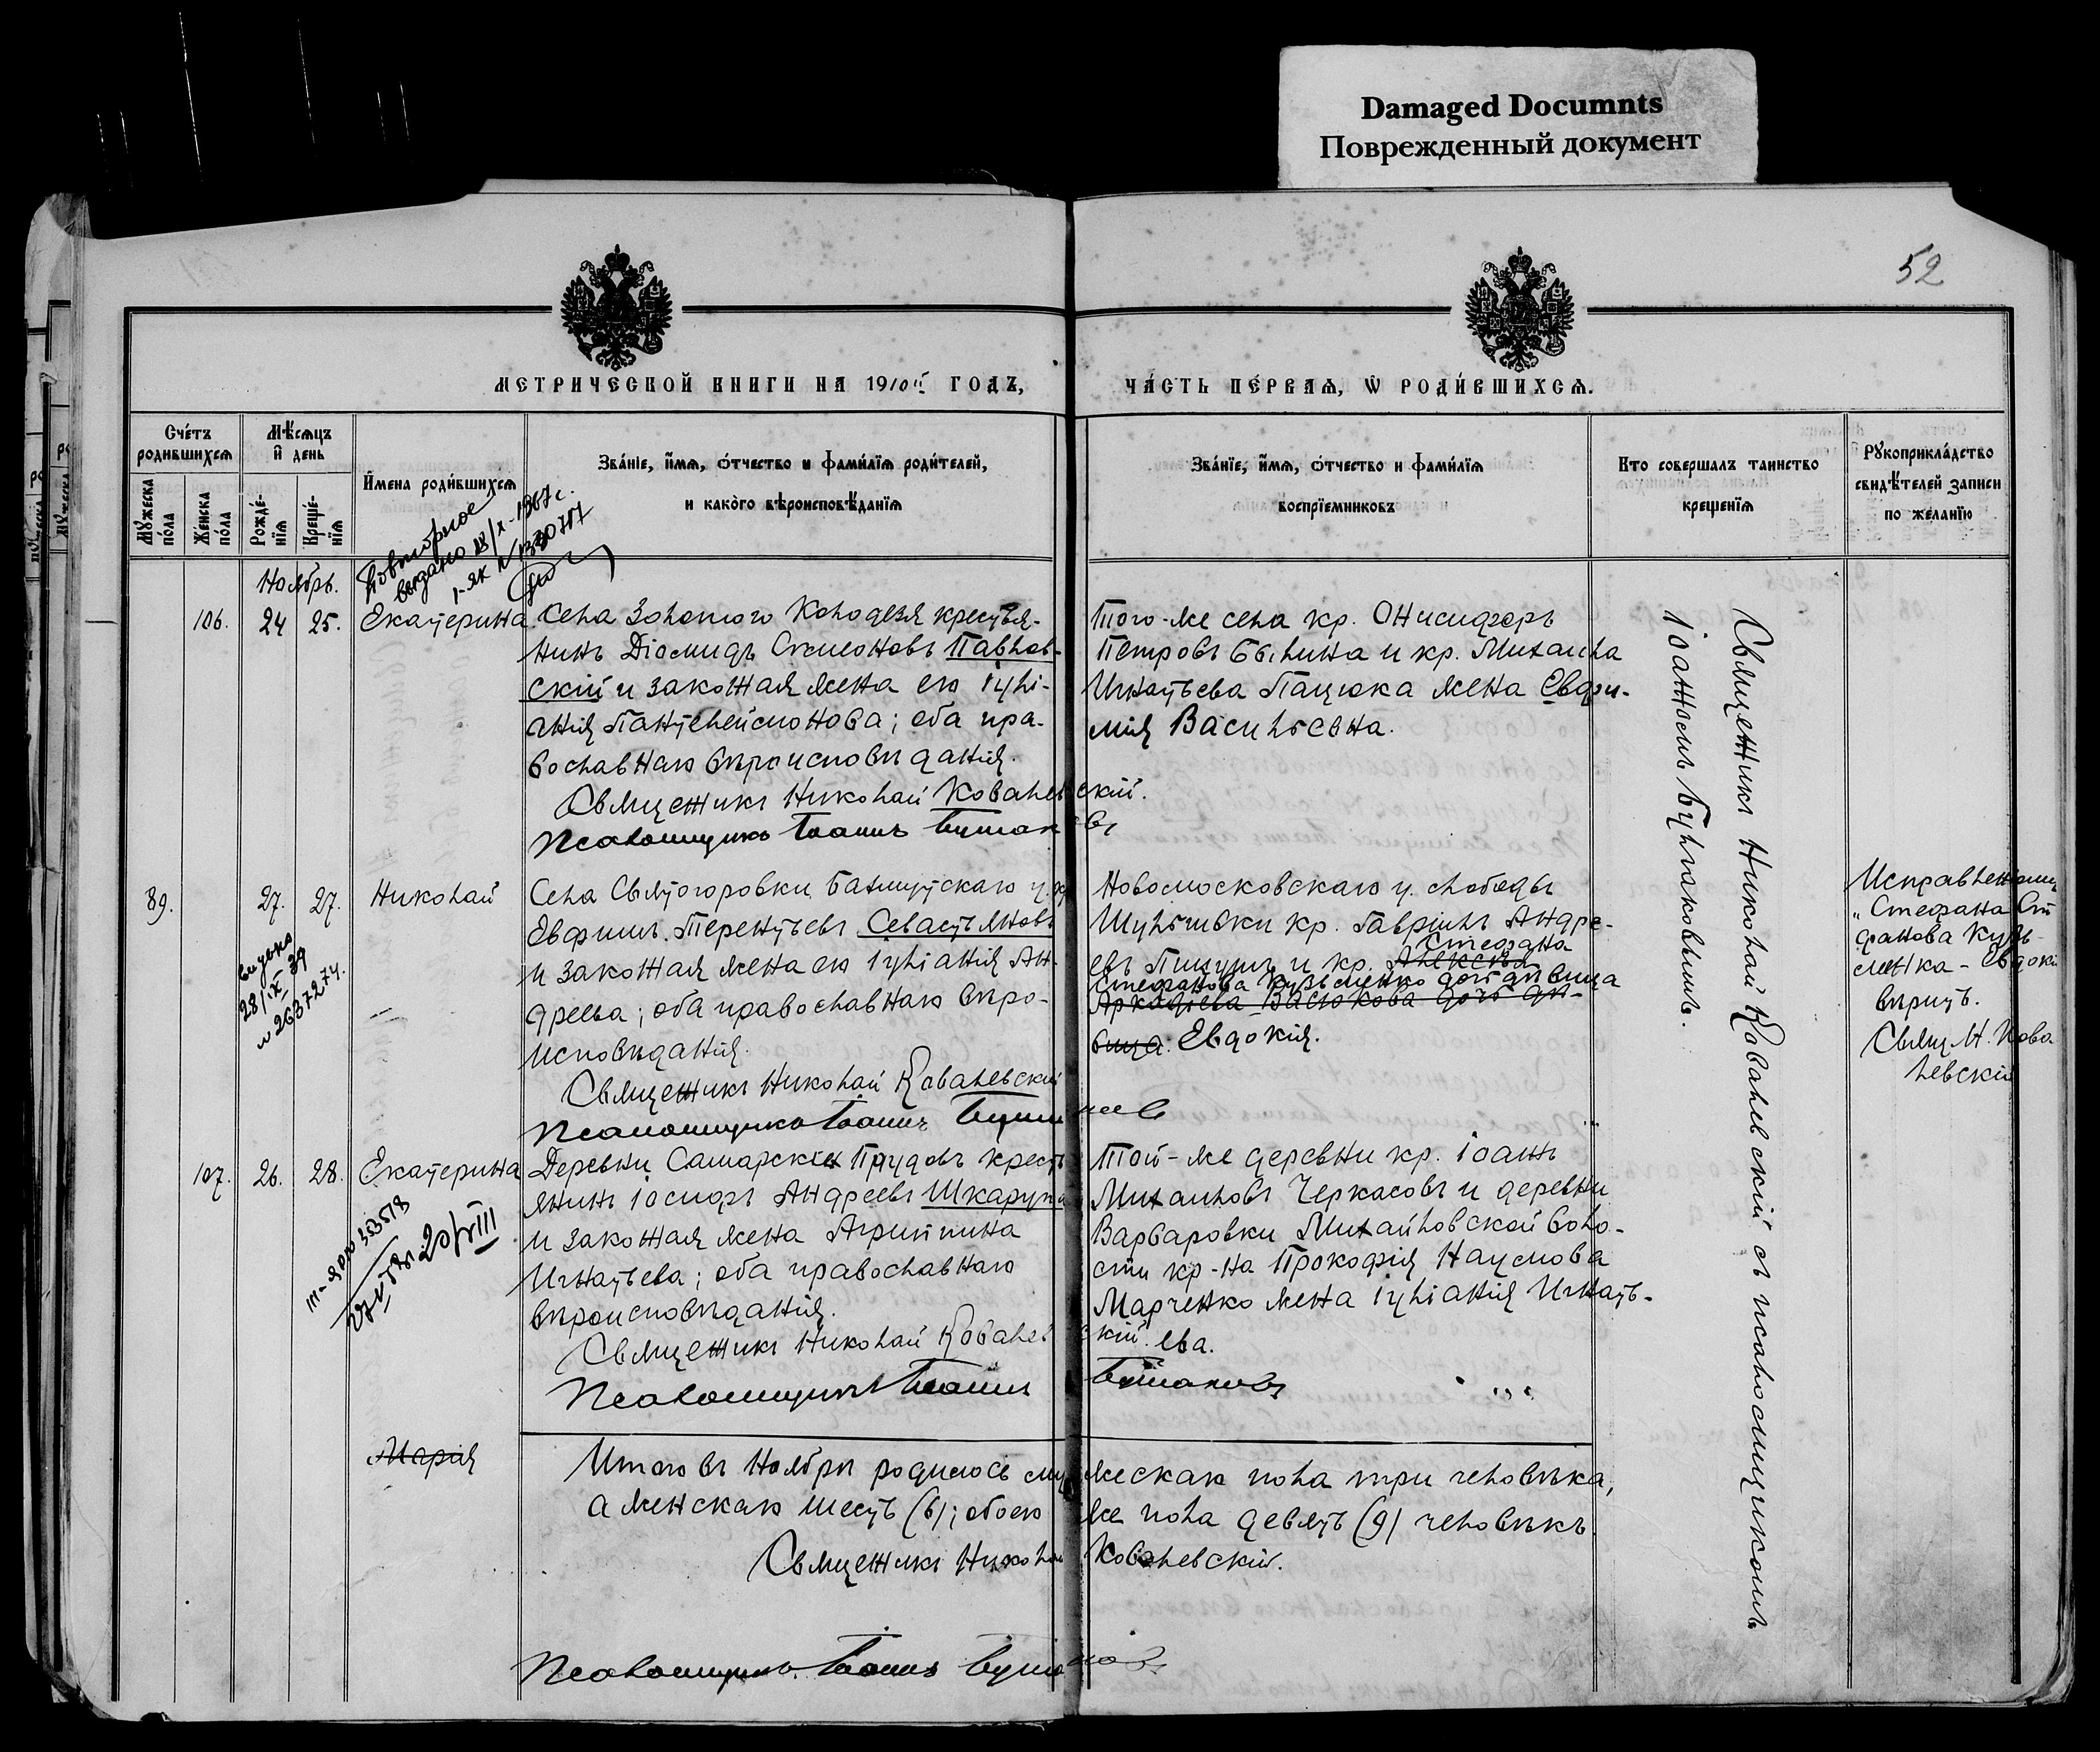 Damaged Documnts
Поврежденный документ
52
МЕТРИЧЕСКОЙ КНИГИ НА 1910й ГОДЪ,
ЧАСТЬ ПЕРВАЯ, Ѡ РОДИВШИХСЯ.
Счетъ родившихся
Мужеска пола
Женска пола
Мѣсяцъ и день
Рожденія
Крещенія
Имена родившихся
Званіе, имя, отчество и фамилія родителей,
и какого вѣроисповѣданія
Званіе, имя, отчество и фамилія
воспріемниковъ
Кто совершалъ таинство
крещенія
Рукоприкладство
свидѣтелей записи
по желанію
Повторное
выдано 18/X-1967г.
Ноябрь.
106. 24 25. Екатерина
Села Золотого Колодезя крестья-
нинъ Діомидъ Симеоновъ Павлов-
скій и законная жена его Іулі-
анія Пантелеймонова; оба пра-
вославнаго вѣроисповѣданія.
Священникъ Николай Ковалевскій.
Псаломщикъ Іоаннъ
Того-же села кр. Онисифоръ
Петровъ Былина и кр. Михаила
Игнатьева Пацюка жена Евфи-
мія Васильевна.
Священникъ Николай Ковалевскій съ псаломщикомъ
Іоанномъ
89. 27. 27. Николай
выдано
28/IX 39
№ 2637274.
Села Святогоровки Бахмутскаго у. кр
Евфимъ Терентьевъ Севастьяновъ
и законная жена его Іуліанія Ан-
дреева; оба православнаго вѣро-
исповѣданія.
Священникъ Николай Ковалевскій
Псаломщикъ Іоаннъ
Новомосковскаго у. слободы
Шульгивки кр. Гавріилъ Андре-
евъ Пищулъ и кр. Алексѣя Стефана
Стефанова Кузьменко дочь дѣвица
Аркадіева Васюкова дочь дѣ-
вица Евдокія.
Исправленному
„Стефана Сте
фанова Кузь-
менка - Евдокія
вѣрить.
Свящ. Н. Кова
левскій
107. 26. 28. Екатерина
20/VIII
Деревни Самарскихъ Прудовъ кресть
янинъ Іосифъ Андреевъ Шкарупа
и законная жена Агриппина
Игнатьева; оба православнаго
вѣроисповѣданія.
Священникъ Николай Ковалевскій.
Псаломщикъ Іоаннъ
Той-же деревни кр. Іоаннъ
Михаиловъ Черкасовъ и деревни
Варваровки Михайловской воло-
сти кр-на Прокофія Наумова
Марченко жена Іуліанія Игнать-
ева.
Марія
Итого въ Ноябрѣ родилось мужескаго пола три человѣка,
а женскаго шесть (6); обоего же пола девять (9) человѣкъ.
Священникъ Николай Ковалевскій.
Псаломщикъ Іоаннъ